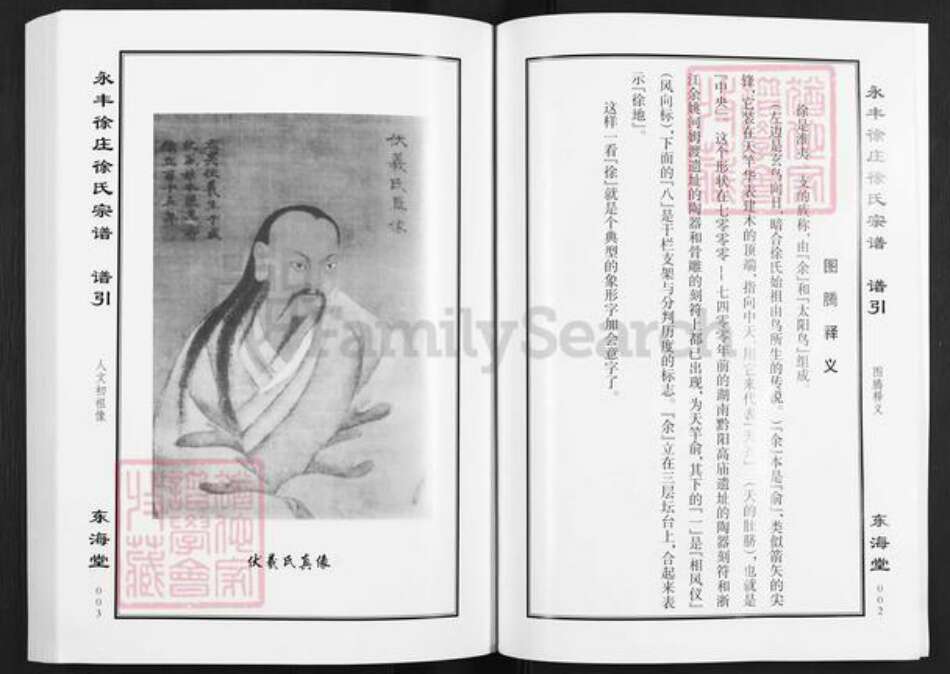 永丰徐庄徐氏宗谱 谱引
图腾释义
东海堂
002
图腾释义
徐是淮夷一支的族称,由『余』和『太阳鸟』组成。
(左边是玄鸟向日,暗合徐氏始祖由鸟所生的传说。)『余』本是『俞』,类似箭矢的尖
锋,它装在天竿华表建木的顶端,指向中天,用它来代表『天齐』(天的肚脐),也就是
『中央』。这个形状在七零零零—七四零零年前的湖南黔阳高庙遗址的陶器刻符和浙
江余姚河姆渡遗址的陶器和骨雕的刻符上都已出现,为天竿俞,其下的『一』是『相风仪』
(风向标),下面的『八』是干栏支架与分判历度的标志。『余』立在三层坛台上,合起来表
示『徐地』。
这样一看『徐』就是个典型的象形字加会意字了。
FamilySearch
伏羲氏真像
伏羲氏真像
永丰徐庄徐氏宗谱 谱引
人文初祖像
东海堂
003